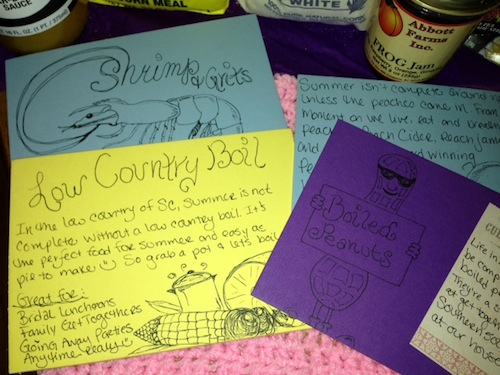 SAUCE
CORN MEAL
WHITE
Abbott
Farms
Inc.
FROG Jam
Shrimp & Grits
Low Country Boil
In the low country of SC, summer is not
complete without a low country boil. It's
the perfect food for summer and easy as
pie to make So grab a pot & let's boil
Great for:
Bridal Luncheons
Family Get Togethers
Going Away Parties
Anytime Really
Summer isn't complete around
unless the peaches come in. From
moment on we live, eat and
peach Peach Cider, Peach Jam
and winning
Boiled
Peanuts
Life in
be con
boiled p
They're a
at get toge
Southern foo
at our hous